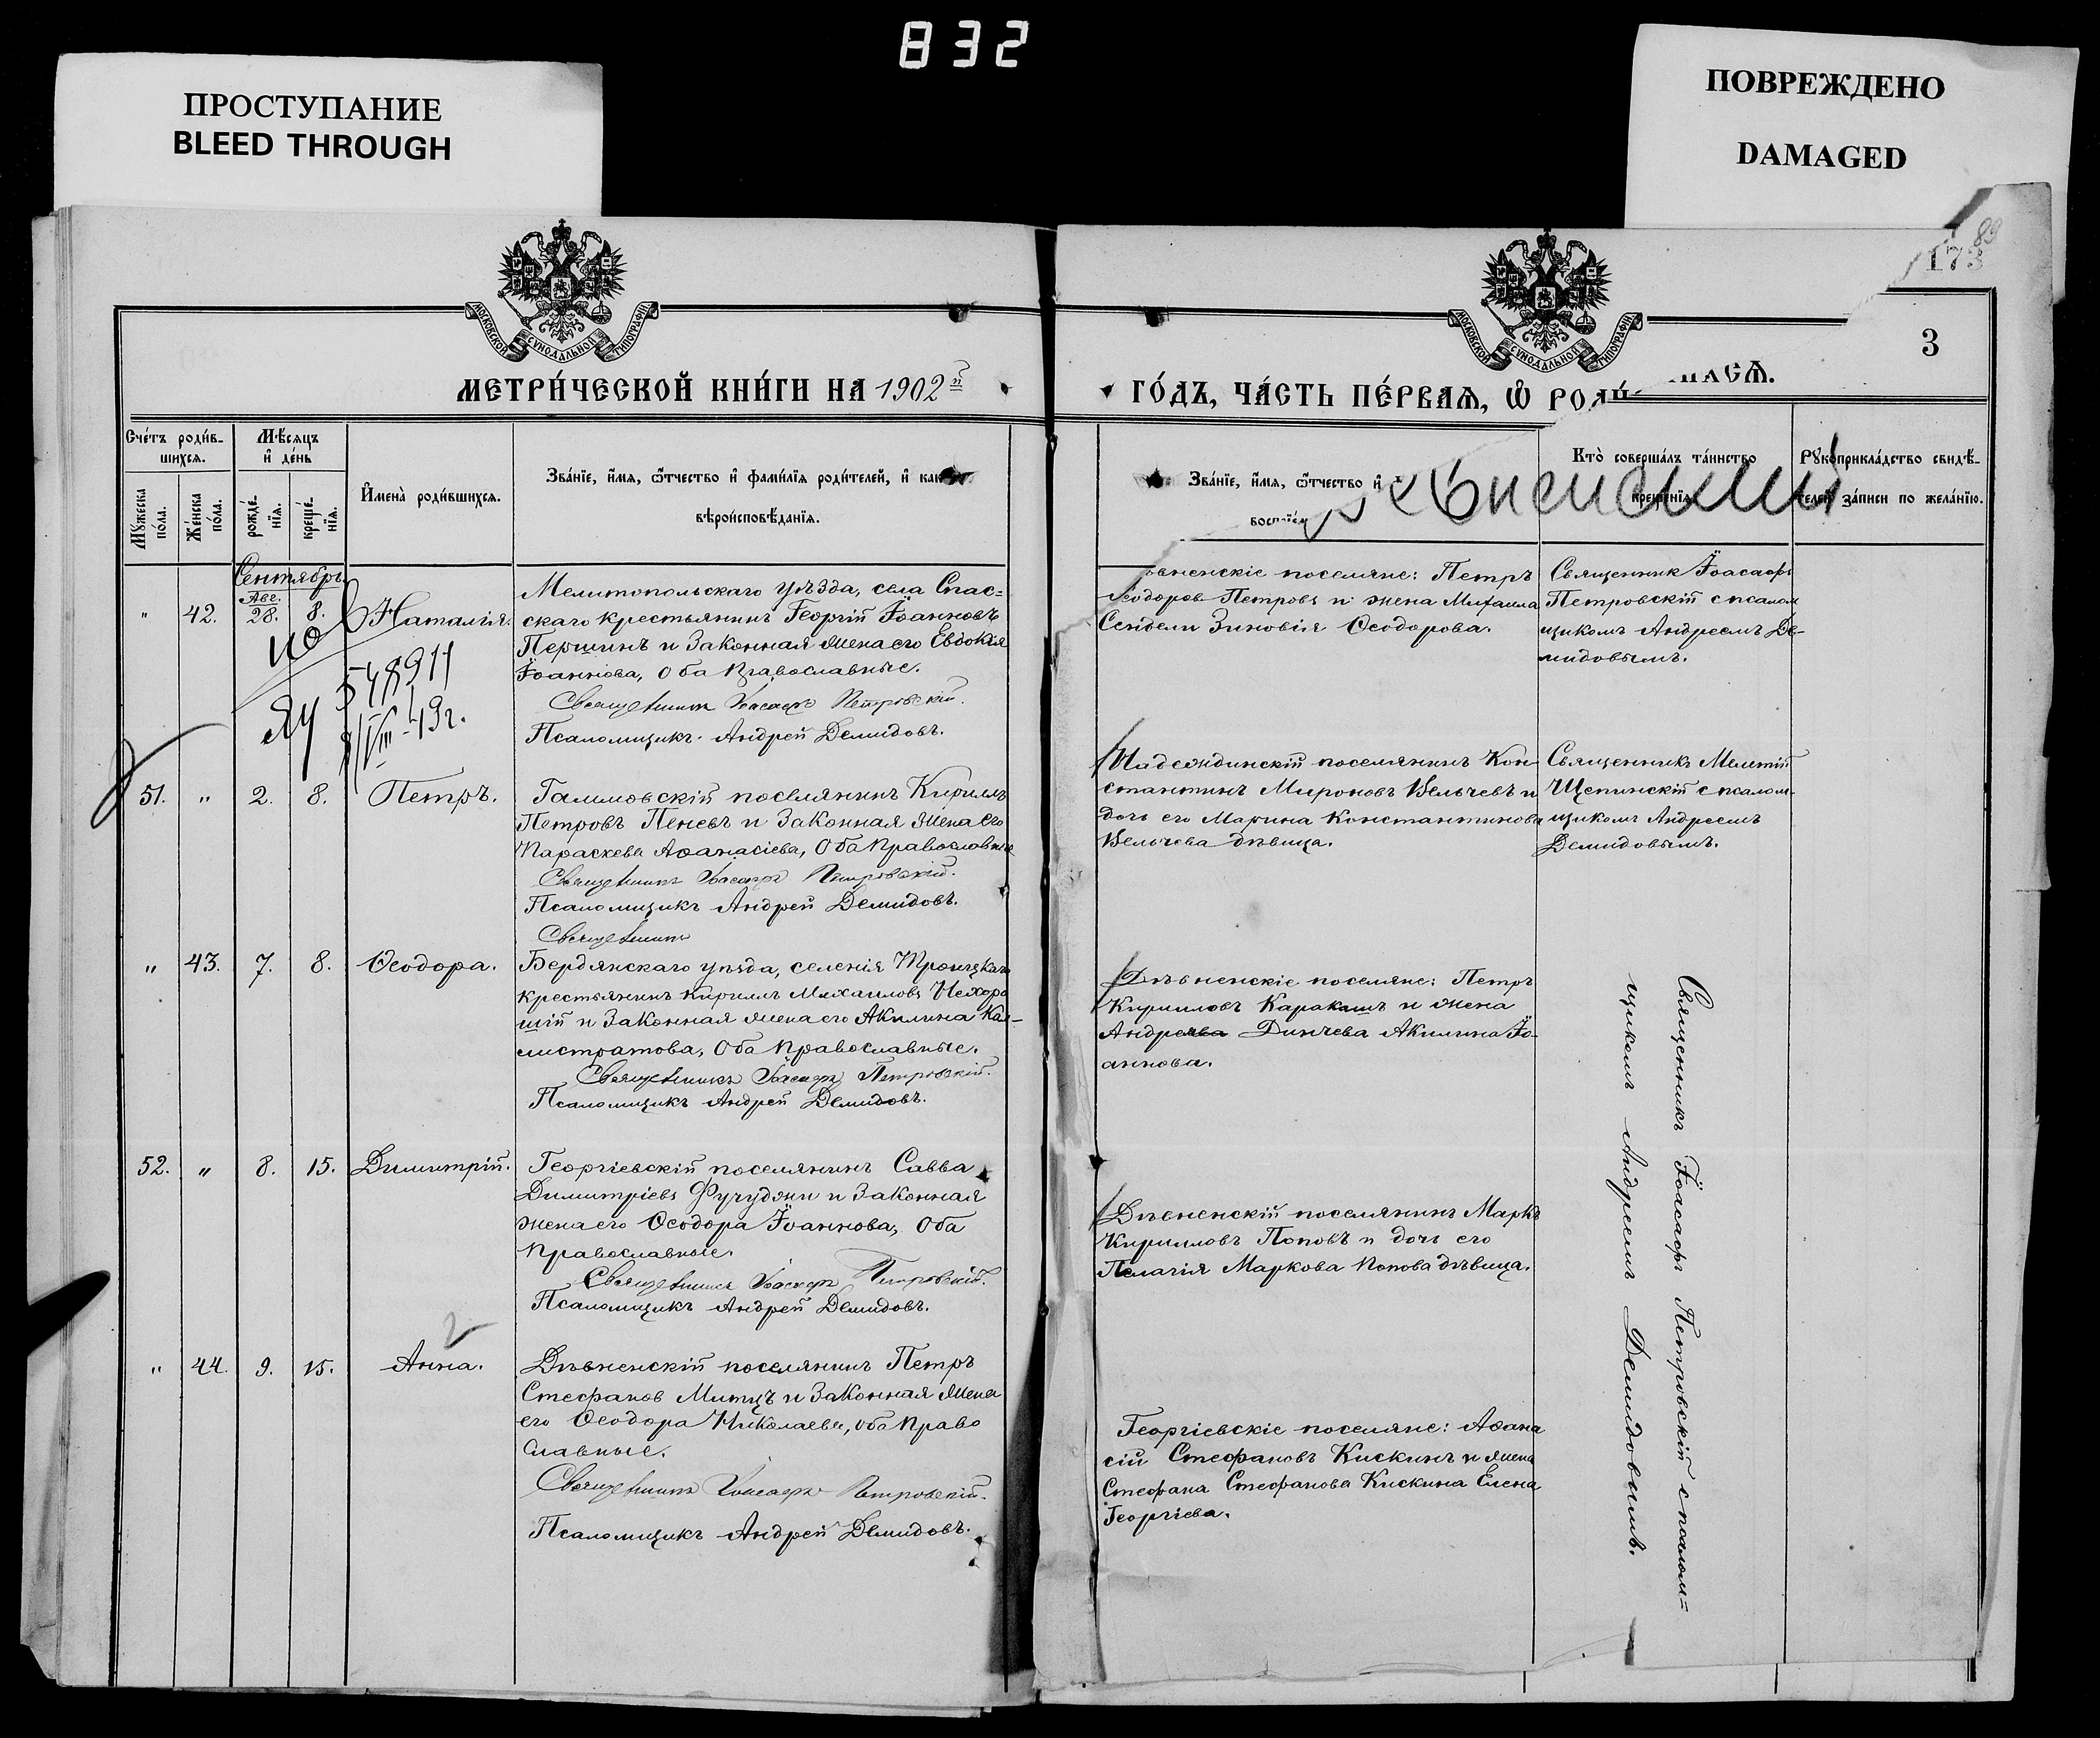 832
ПРОСТУПАНИЕ
BLEED THROUGH
ПОВРЕЖДЕНО
DAMAGED
89
173
3
МОСКОВСКОЙ СѴНОДАЛЬНОЙ ТИПОГРАФІИ
МОСКОВСКОЙ СѴНОДАЛЬНОЙ ТИПОГРАФІИ
МЕТРИ́ЧЕСКОЙ КНИ́ГИ НА 1902й
ГО́ДЪ, ЧА́СТЬ ПЕ́РВАѦ, Ѡ҆ РОДИ́
Сче́тъ роди́в-
шихся.
Мѣ́сяцъ
и҆ де́нь
Мꙋ́жеска по́ла.
Же́нска по́ла.
рожде́нїя.
креще́нїя.
И҆мена̀ роди́вшихся.
Зва́нїе, и҆́мя, ѻ҆́тчество и҆ фами́лїя роди́телей, и҆ как
вѣроисповѣ́данїя.
Зва́нїе, и҆́мя, ѻ҆́тчество и҆
воспрїе́м
Кто̀ соверша́лъ та́инство
креще́нїя
Рꙋкоприкла́дство свидѣ́-
телей за́писи по жела́нїю.
Сентябрь.
" 42. Авг. 28. 8. Наталія.
Мелитопольскаго уѣзда, села Спас=
скаго крестьянинъ Георгій Іоанновъ
Першинъ и законная жена его Евдокія
Іоаннова, оба православные.
Священникъ Іоасафъ Петровскій.
Псаломщикъ Андрей Демидовъ.
ЯЧ 548911
8/VIII-49г.
вненскіе поселяне: Петръ
Ѳеодоровъ Петровъ и жена Михаила
Сендели Зиновія Ѳеодорова.
Священникъ Іоасафъ
Петровскій с псалом
щикомъ Андреемъ Де-
мидовымъ.
51. " 2. 8. Петръ.
Гамовскій поселянинъ Кириллъ
Петровъ Пеневъ и законная жена его
Параскева Аѳанасіева, оба православные
Священникъ Іоасафъ Петровскій.
Псаломщикъ Андрей Демидовъ.
Священникъ
поселянинъ Кон
стантинъ Мироновъ Вельчевъ и
дочь его Марина Константинова
Вельчева дѣвица.
Священникъ Мелетій
Щепинскій с псалом-
щикомъ Андреемъ
Демидовымъ.
" 43. 7. 8. Ѳеодора.
Бердянскаго уѣзда, селенія Троицкаго
крестьянинъ Кириллъ Михаиловъ Нехоро
шій и законная жена его Акилина Кал-
листратова, оба православные.
Священникъ Іоасафъ Петровскій.
Псаломщикъ Андрей Демидовъ.
Дѣвненскіе поселяне: Петръ
Кирилловъ Каракашъ и жена
Андреева Динчева Акилина Іо-
аннова.
52. " 8. 15. Димитрій.
Георгіевскій поселянинъ Савва
Димитріевъ Фучуджи и законная
жена его Ѳеодора Іоаннова, оба
православные.
Священникъ Іоасафъ Петровскій.
Псаломщикъ Андрей Демидовъ.
Дѣвненскій поселянинъ Маркъ
Кирилловъ Поповъ и дочь его
Пелагія Маркова Попова дѣвица.
" 44. 9. 15. Анна.
Дѣвненскій поселянинъ Петръ
Стефановъ Митцъ и законная жена
его Ѳеодора Николаева, оба право
славные.
Священникъ Іоасафъ Петровскій.
Псаломщикъ Андрей Демидовъ.
Георгіевскіе поселяне: Аѳана
сій Стефановъ Кискинъ и жена
Стефана Стефанова Кискина Елена
Георгіева.
Священникъ Іоасафъ Петровскій с псалом=
щикомъ Андреемъ Демидовымъ.